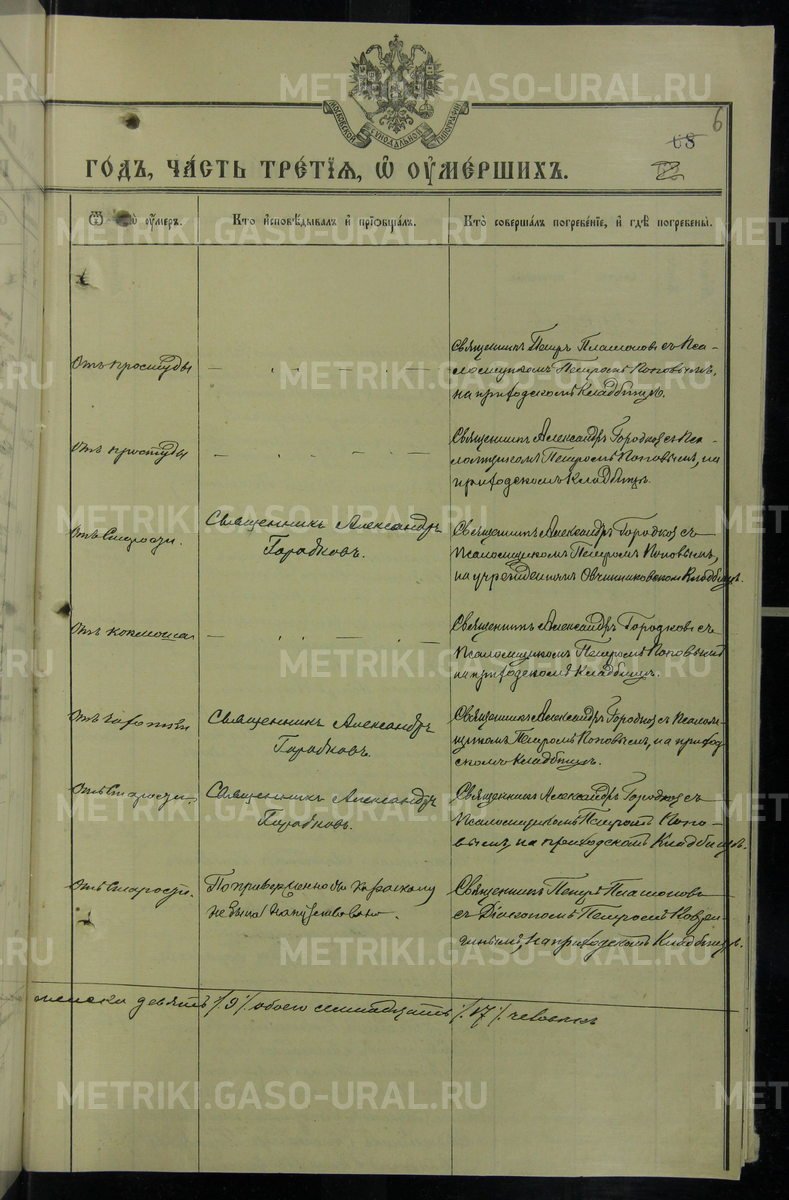 METRIKI.GASO-URAL.RU
МОСКОВСКОЙ СѴНОДАЛЬНОЙ ТИПОГРАФІИ
6
68
ГОДЪ, ЧАСТЬ ТРЕТІЯ, Ѿ ОУМЕРШИХЪ.
Ѿ оумеръ.
Кто исповѣдывалъ и пріобщалъ.
Кто совершалъ погребеніе, и гдѣ погребены.
Отъ простуды
Священникъ Петръ Платоновъ съ Пса-
ломщикомъ Петромъ Поповымъ,
на приходскомъ Кладбищѣ.
Отъ простуды
Священникъ Александръ Городковъ съ Пса-
ломщикомъ Петромъ Поповымъ, на
приходскомъ Кладбищѣ.
Отъ Старости.
Священникъ Александръ
Городковъ.
Священникъ Александръ Городковъ съ
Псаломщикомъ Петромъ Поповымъ,
на учрежденномъ Овчинниковскомъ Кладбищѣ.
Отъ коклюша
Священникъ Александръ Городковъ съ
Псаломщикомъ Петромъ Поповымъ
на приходскомъ Кладбищѣ.
Отъ чахотки
Священникъ Александръ
Городковъ.
Священникъ Александръ Городковъ съ Псалом-
щикомъ Петромъ Поповымъ, на приход-
скомъ Кладбищѣ.
Отъ Старости.
Священникъ Александръ
Городковъ.
Священникъ Александръ Городковъ съ
Псаломщикомъ Петромъ Попо-
вымъ, на приходскомъ Кладбищѣ.
Отъ Старости.
По приверженности къ расколу
не была напутствована.
Священникъ Петръ Платоновъ
съ Діакономъ Петромъ
на приходскомъ Кладбищѣ.
женска девять /9/ обоего семнадцать /17/ человѣкъ